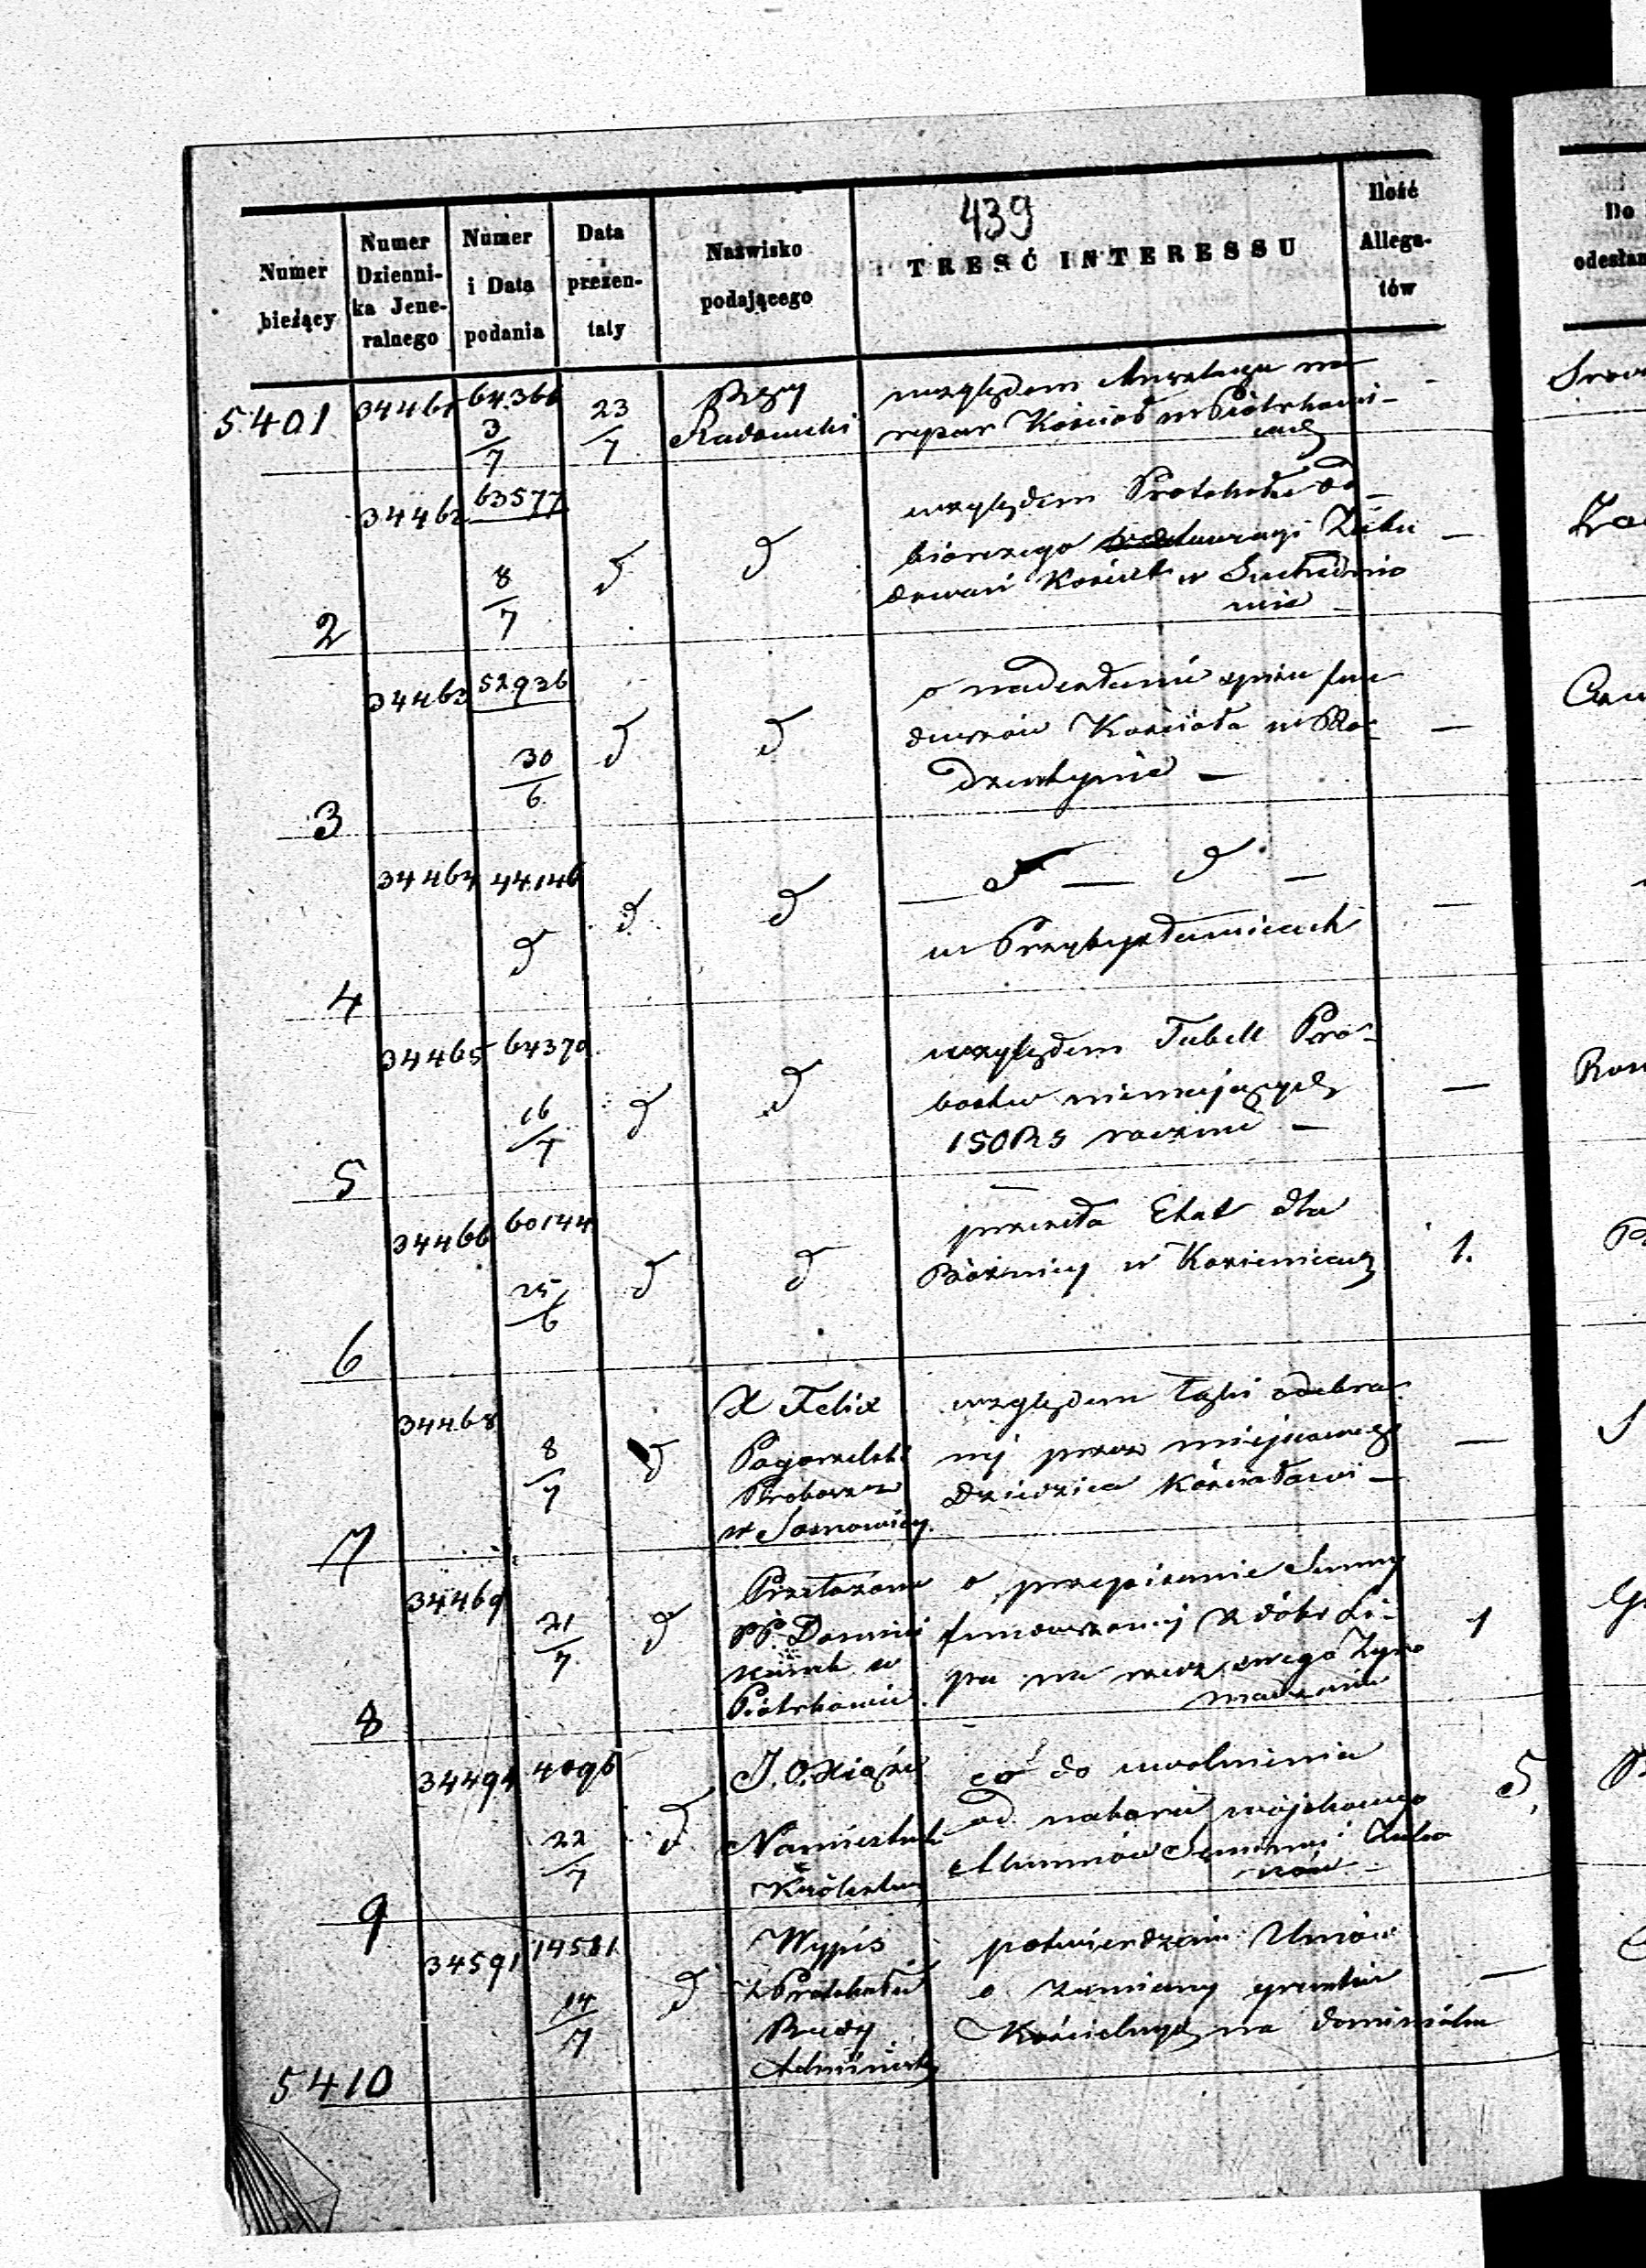 439
Numer bieżący
Numer Dzienni- ka Jene- ralnego
Numer i Data podania
Data prezen- taty
Nazwisko podającego
TREŚĆ INTERESSU
Ilość Allega- tów
Do
5401 34461 64366 3/7 23/7
Radomski
względem na
repar Kościoł w Piotrkowi-
cach
2 34462 63577 8/7 d d
względem Protokołu od
biorczego Zabu
dowań Kościel w Suchednio
wie —
3 34463 52926 30/6 d d
o nadesłanie spisu fun
duszów Kościoła w
—
4 34464 44146 d d d
— d — d —
w Przybysławicach —
5 34465 64370 16/7 d d
względem Tabell Pro-
bostw niemających —
150 RS rocznie —
6 34466 60144 25/6 d d
przesyła Etat dla
Bóżnicy w Kozienicach 1.
7 34468 8/7 d
X Felix
Pogorzelski
Proboszcz
w Sosnowicy.
względem łąki odebra
nej przez miejscowego —
Dziedzica Kościołowi —
8 34469 21/7 d
Przełożony
PP. Domini
kanek w
Piotrkowie
o przepisanie Summy
funduszowej z dóbr Li- 1
pa na rzecz swego Zgro
madzenia
9 34494 4096 22/7 d
J. O. Xiąże
Namiestnik
Królestwa
co do uwolnienia 5
od naboru wojskowego
Alumnów Semina:
5410 34591 14581 14/7 d
Wypis
z Protokołu
Rady
Administr
potwierdzenie Umów
o zamiany gruntów —
Kościelnych na dominialne